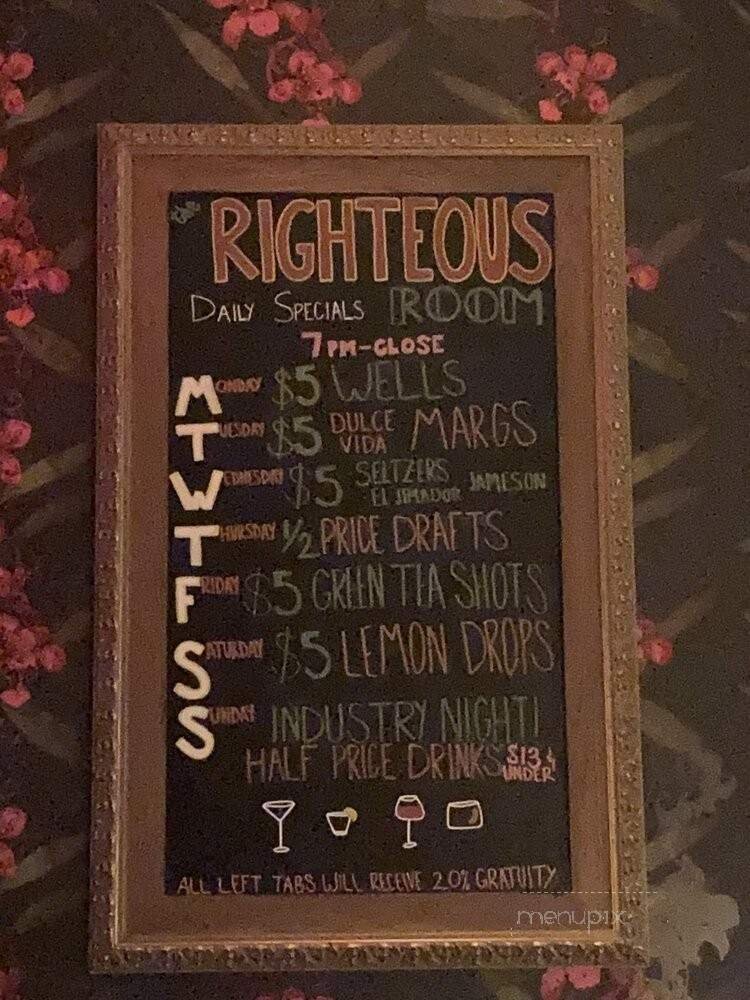 the RIGHTEOUS
DAILY SPECIALS ROOM
7PM-CLOSE
MONDAY $5 WELLS
TUESDAY $5 DULCE VIDA MARGS
WEDNESDAY $5 SELTZERS EL JIMADOR JAMESON
THURSDAY 1/2 PRICE DRAFTS
FRIDAY $5 GREEN TEA SHOTS
SATURDAY $5 LEMON DROPS
SUNDAY INDUSTRY NIGHT!
HALF PRICE DRINKS $13 & UNDER
ALL LEFT TABS WILL RECEIVE 20% GRATUITY
menupix